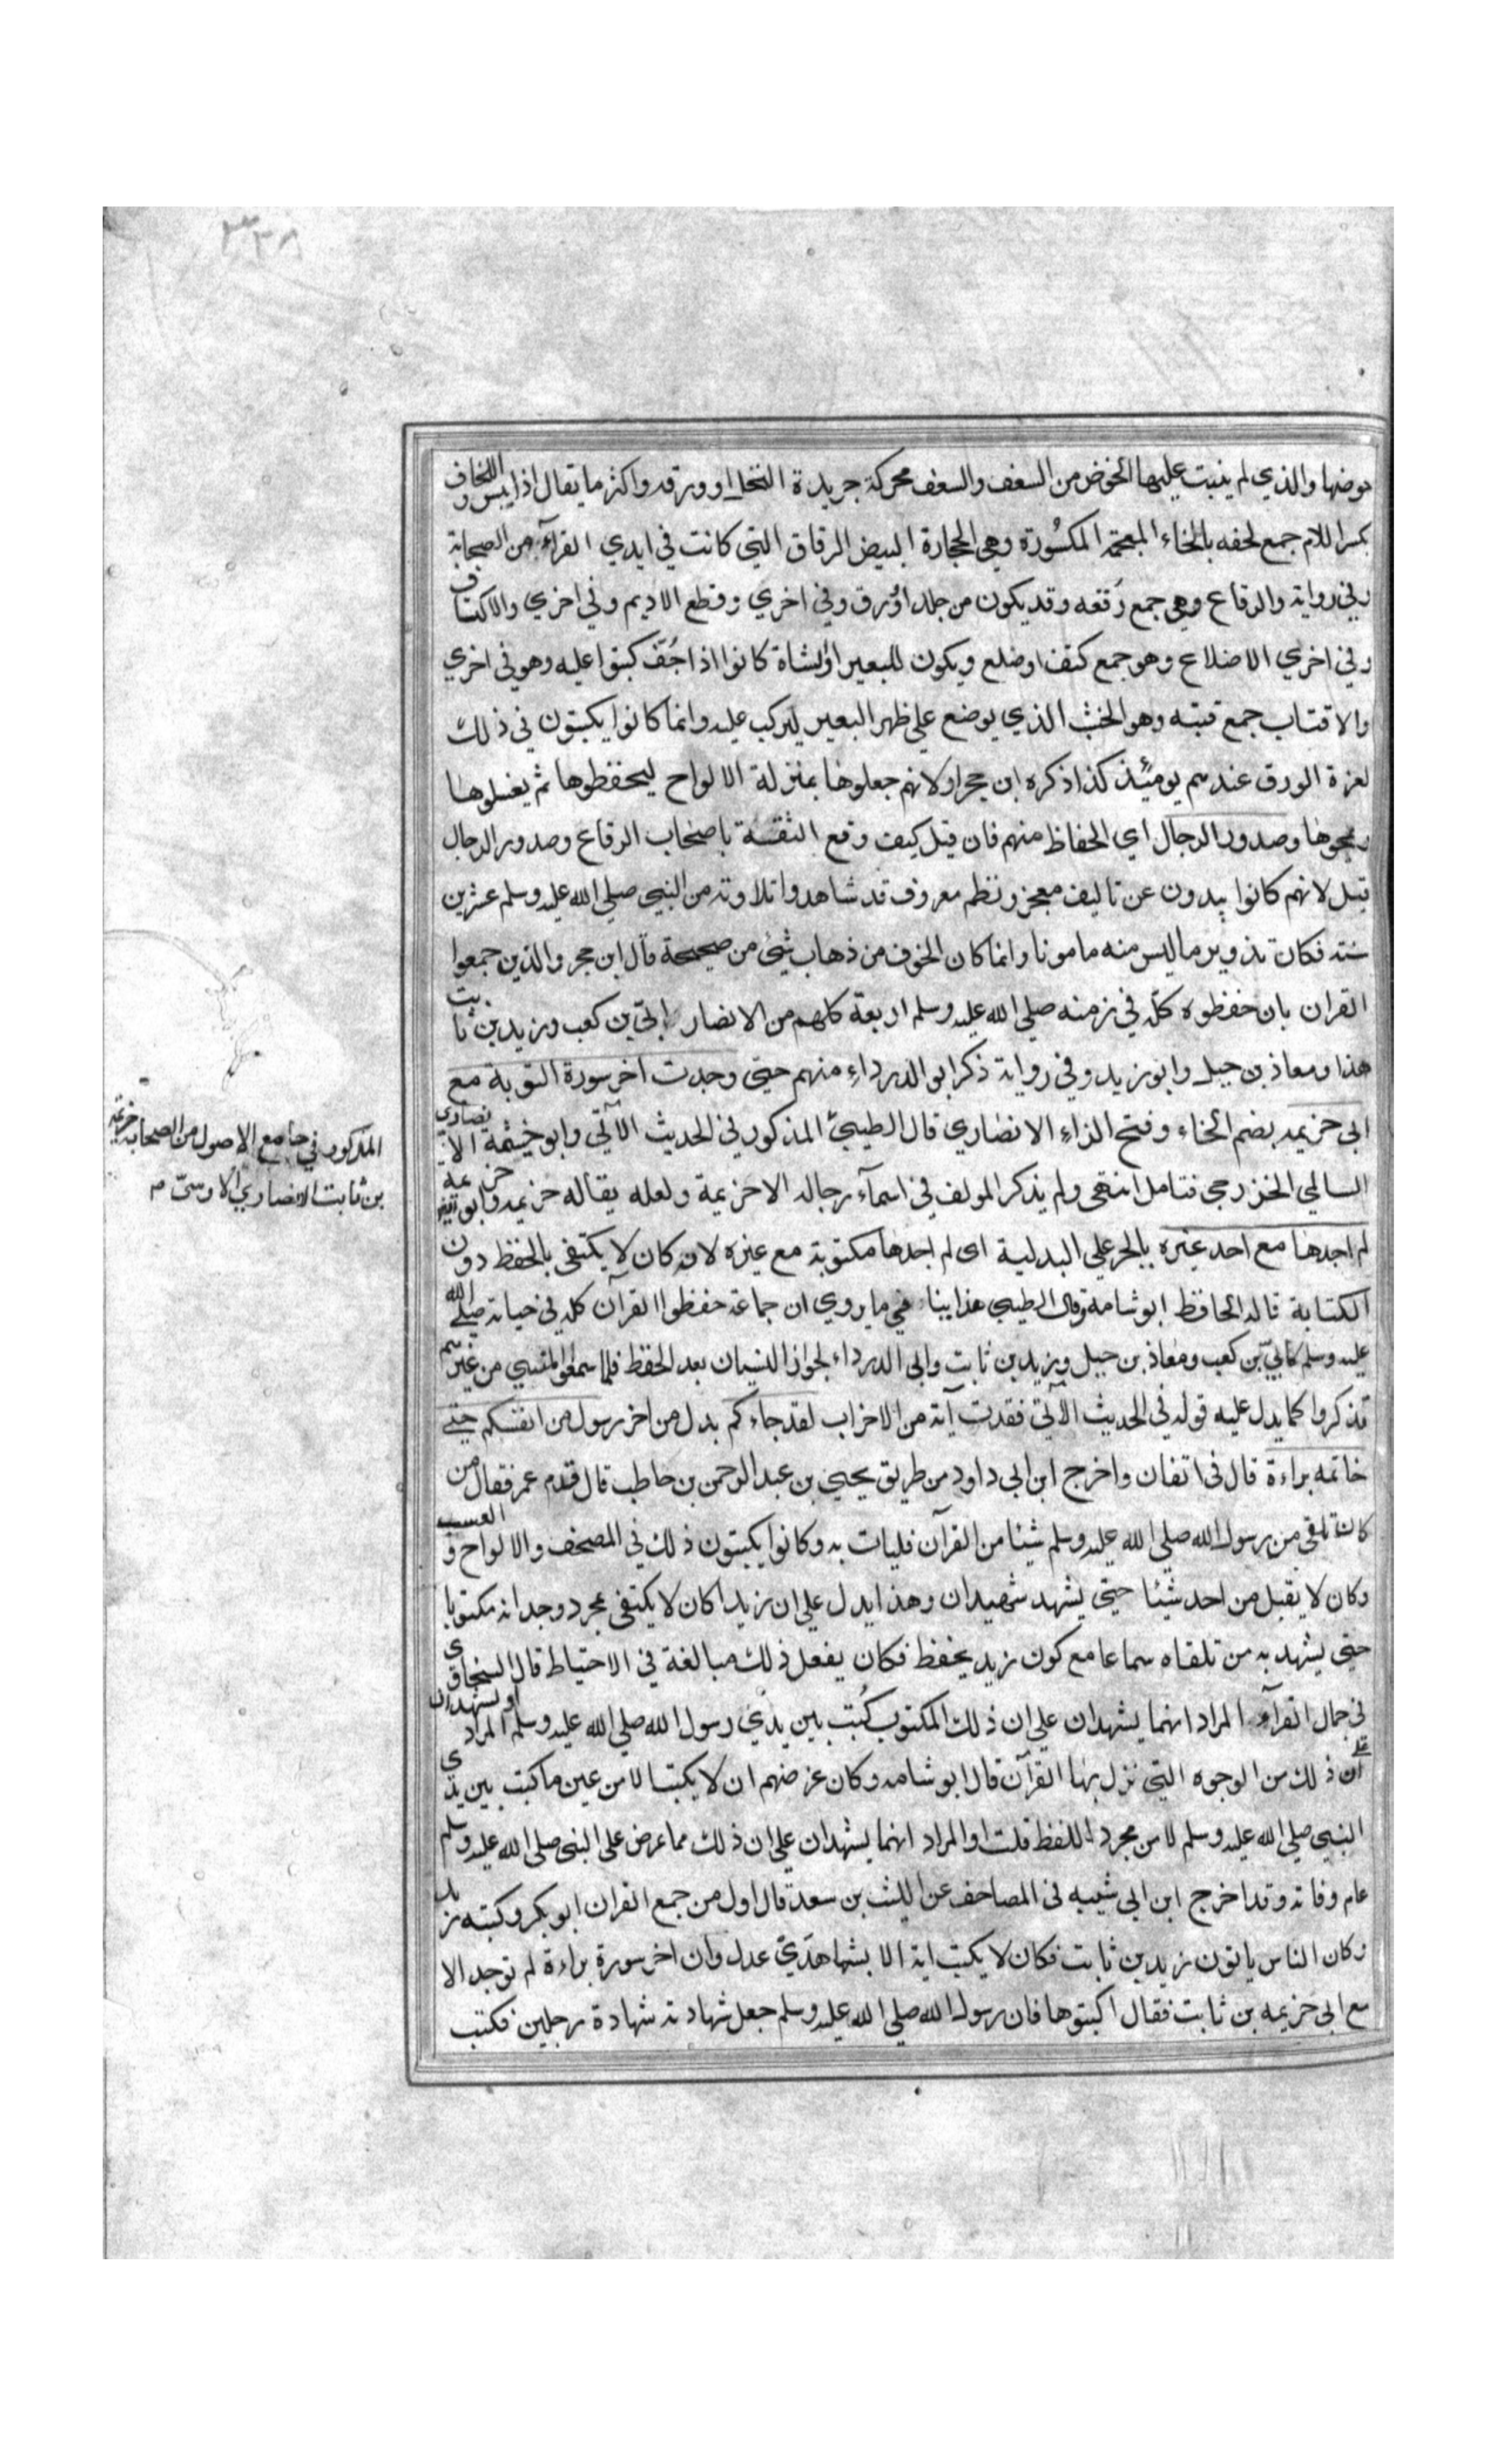 ٣٣٨
خوضها والذي لم ينبت عليها الخوض من السعف والسعف محركة جريدة النخل او ورقه واكثر ما يقال اذا يبس واللخاف
بكسر اللام جمع لخفه بالخاء المعجمة المكسورة وهي الحجارة البيض الرقاق التي كانت في ايدي القرآء من الصحابة
وفي رواية والرقاع وهي جمع رقعه وقد يكون من جلد او ورق وفي اخري وقطع الاديم وفي اخري والاكتاف
وفي اخري الاضلاع وهو جمع كتف او ضلع ويكون للبعير او لشاة كانوا اذا جُفّ كتبوا عليه وهو في اخري
والاقتاب جمع قتبه وهو الخشب الذي يوضع علي ظهر البعير ليركب عليه وانما كانوا يكتبون في ذلك
لعزة الورق عندهم يومئذ كذا ذكره ابن حجر او لانهم جعلوها بمنزلة الالواح ليحفظوها ثم يغسلوها
ويمحوها وصدور الرجال اي الحفاظ منهم فان قيل كيف وقع الثقة باصحاب الرقاع وصدور الرجال
قيل لانهم كانوا يبدون عن تاليف معجز ونظم معروف قد شاهدوا تلاوته من النبي صلي الله عليه وسلم عشرين
سنته فكان تذوير ما ليس منه مامونا وانما كان الخوف من ذهاب شئ من صحيحة قال ابن حجر والذين جمعوا
القران بان حفظوه كلّه في زمنه صلي الله عليه وسلم اربعة كلهم من الانصار ابيّ بن كعب وزيد بن ثابت
هذا ومعاذ بن جبل وابو زيد وفي رواية ذكر ابي الدرداء منهم حتي وجدت اخر سورة التوبة مع
ابي خزيمه بضم الخاء وفتح الزاء الانصاري قال الطيبيّ المذكور في الحديث الآتي وابو خيثمة الانصاري
السالمي الخزرجي فتامل انتهى ولم يذكر المولف في اسمآء رجاله الا خزيمة ولعله يقال له خزيمه وابو خزيمه
المذكور في جامع الاصول من الصحابه خزيمه
بن ثابت الانصاري الاوسيّ م
لم اجدها مع احد غيره بالجر علي البدلية اى لم اجدها مكتوبة مع غيره لانه كان لا يكتفى بالحفظ دون
الكتابة قاله الحافظ ابو شامة وقال الطيبي هذا ينا في ما روي ان جماعة حفظوا القرآن كله في حياته صلى الله
عليه وسلم كابيّ بن كعب ومعاذ بن جبل وزيد بن ثابت وابي الدرداء لجواز النسيان بعد الحفظ فلما سمعوا المنسي من غيرهم
تذكروا كما يدل عليه قوله في الحديث الآتي فقدت آية من الاحزاب لقد جاءكم بدل من اخر رسول من انفسكم حتي
خاتمه براءة قال في اتقان واخرج ابن ابي داود من طريق يحيى بن عبد الرحمن بن حاطب قال قدم عمر فقال من
كان تلقى من رسول الله صلي الله عليه وسلم شيئا من القرآن فليات به وكانوا يكتبون ذلك في المصحف والالواح والعسب
وكان لا يقبل من احد شيئا حتي يشهد شهيدان وهذا يدل علي ان زيدا كان لا يكتفى بمجرد وجدانه مكتوبا
حتى يشهد به من تلقاه سماعا مع كون زيد يحفظ فكان يفعل ذلك مبالغة في الاحتياط قال السخاوي
في جمال القرآء المراد انهما يشهدان علي ان ذلك المكتوب كُتب بين يدي رسول الله صلي الله عليه وسلم المراد او يشهدان
علي ان ذلك من الوجوه التي نزل بها القرآن قال ابو شامه وكان غرضهم ان لا يكتب الا من عين ما كتب بين يدي
النبي صلي الله عليه وسلم لا من مجرد اللفظ قلت او المراد انهما يشهدان علي ان ذلك مما عرض على النبي صلي الله عليه وسلم
عام وفاته وقد اخرج ابن ابي شيبه في المصاحف عن الليث بن سعد قال اول من جمع القران ابو بكر وكتبه زيد
وكان الناس ياتون زيد بن ثابت فكان لا يكتب اية الا بشاهدَيّ عدل وان اخر سورة براءة لم توجد الا
مع ابي خزيمه بن ثابت فقال اكتبوها فان رسول الله صلي الله عليه وسلم جعل شهادته شهادة رجلين فكتب